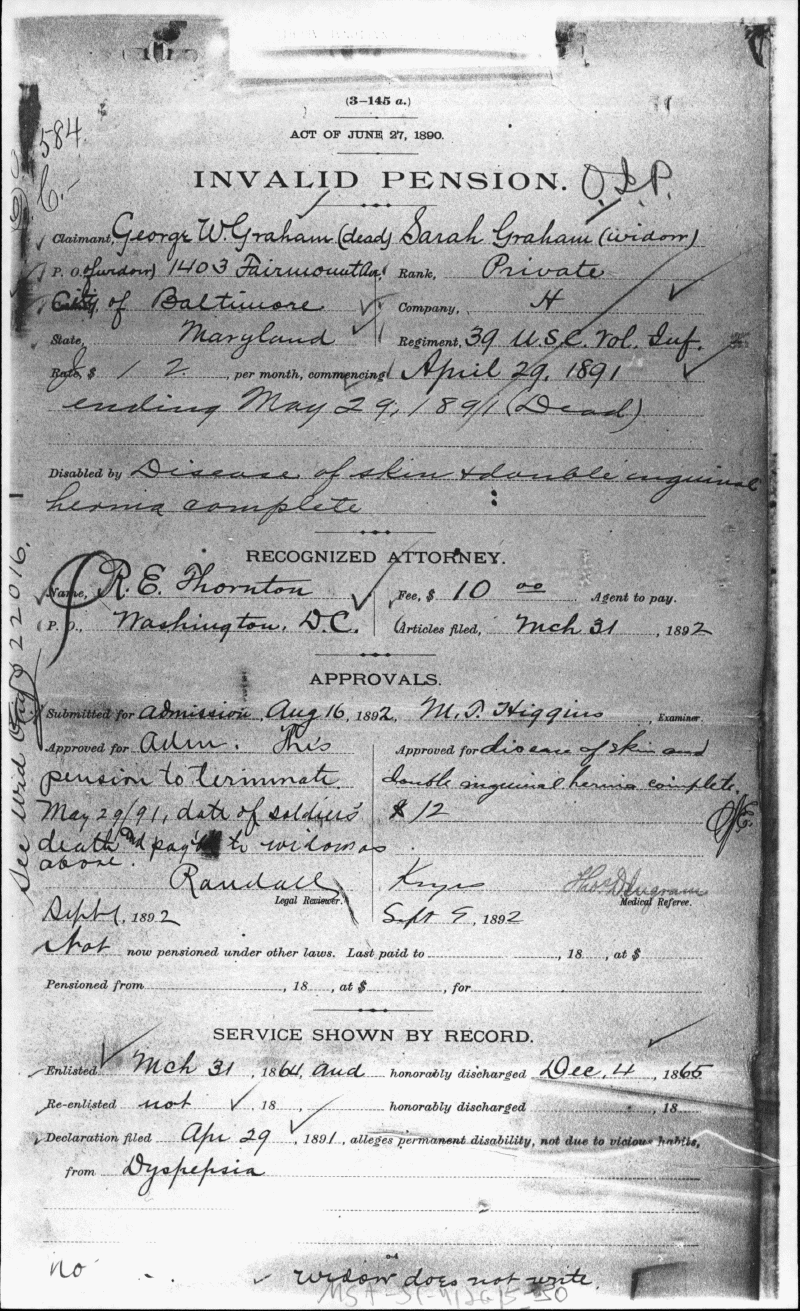 (3-145 a.)
ACT OF JUNE 27, 1890.
584
INVALID PENSION. O.I.P.
Claimant, George W. Graham (dead) Sarah Graham (widow)
P. O. (of widow) 1403 Fairmount Av. Rank, Private
City of Baltimore Company, H
State, Maryland Regiment, 39 U.S.C. Vol. Inf.
Rate, $ 12 , per month, commencing April 29, 1891
ending May 29, 1891 (Dead)
Disabled by Disease of skin & double inguinal
hernia complete
RECOGNIZED ATTORNEY.
Name, R. E. Thornton Fee, $ 10 00 Agent to pay.
P. O., Washington, D.C. Articles filed, Mch 31 , 1892
APPROVALS.
Submitted for admission, Aug 16, 1892, M. T. Higgins , Examiner.
Approved for Adm. This
pension to terminate
May 29/91, date of soldiers'
death and pay'b to widow as
above.
Randall
Legal Reviewer.
Sept 1, 1892
Approved for disease of skin and
double inguinal hernia complete.
$ 12
Thos D Ingram
Medical Referee.
Sept 9, 1892
Not now pensioned under other laws. Last paid to , 18 , at $
Pensioned from , 18 , at $ , for
SERVICE SHOWN BY RECORD.
Enlisted Mch 31 , 1864, and honorably discharged Dec. 4 , 1865
Re-enlisted not , 18 , honorably discharged , 18
Declaration filed Apr 29 , 1891, alleges permanent disability, not due to vicious habits,
from Dyspepsia
no
widow does not write.
See Wid 522016.